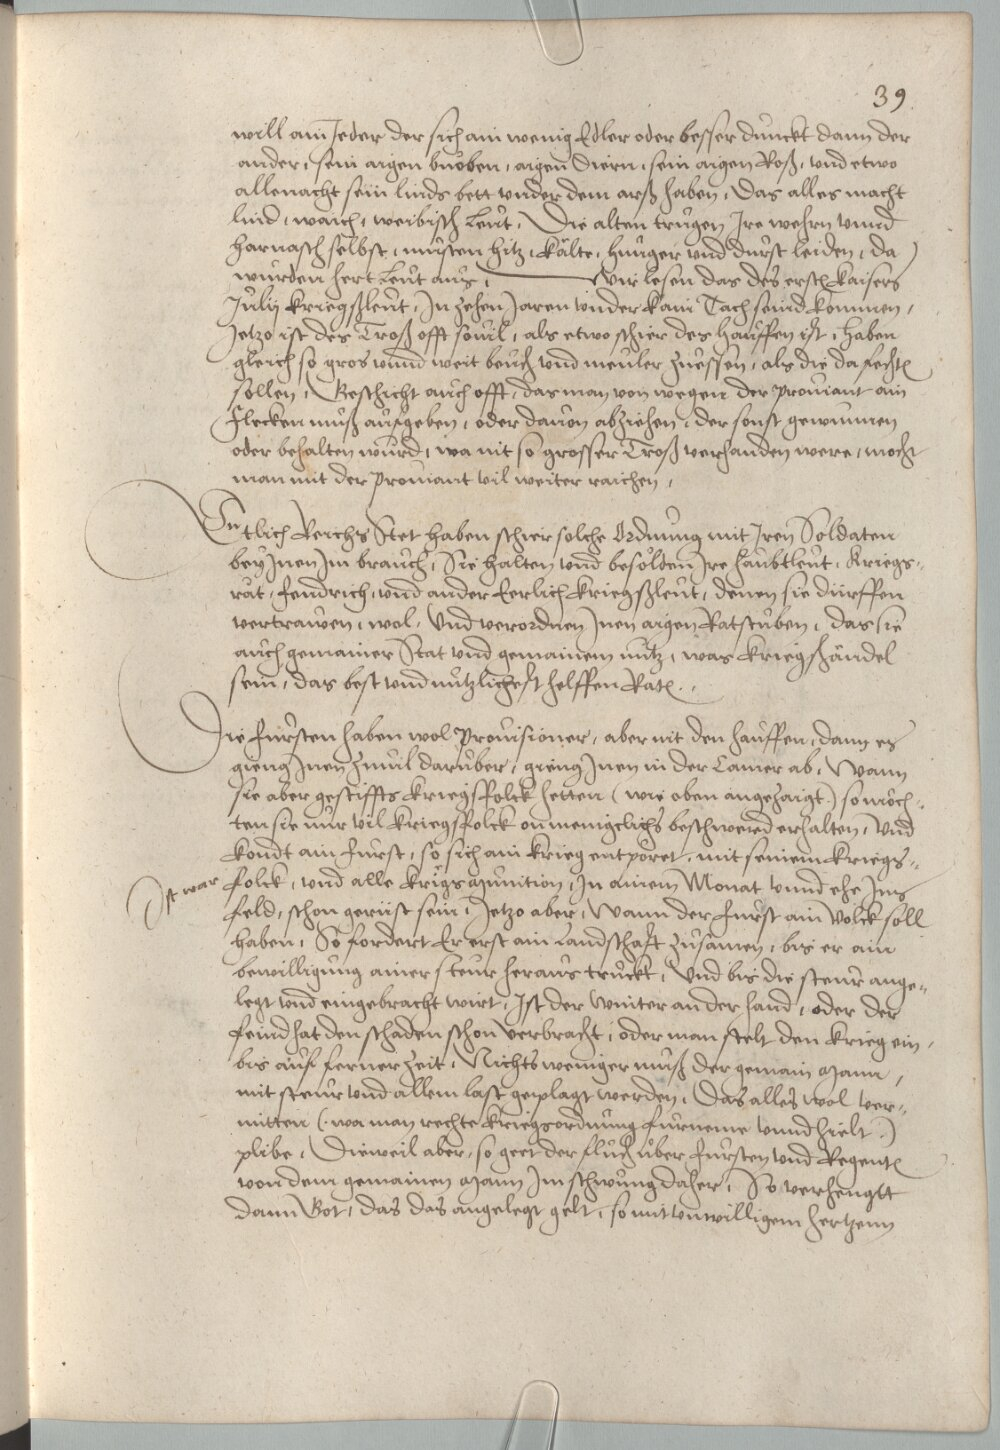 39.
will ain Jeder der sich ain wenig Edler oder besser dunckt dann der
ander, sein aigen buoben, aigen Diern, sein aigen Roß, und etwo
allenacht sein linds bett under dem arß haben, Das alles macht
lind, waich, weibisch Leut, Die alten trugen Ire wehrn unnd
harnasch selbst, musten hitz, kälte, hunger und durst leiden, da
wurden hert Leut aus, Wir lesen das des ersten kaisers
Julij kriegßleut, In zehen Jaren under kain Tach seind kommen,
Jetzo ist des Troß offt sovil, als etwo schier des hauffen ist, haben
gleich so gros unnd weit beuch und meuler zuessen, als die da fechten
sollen, Geschicht auch offt, das man von wegen der Proviant ain
flecken muß aufgeben, oder davon abziehen, der sonst gewunnen
oder behalten wurd, wa nit so grosser Troß verhanden were, mocht
man mit der Proviant vil weiter raichen,
Etlich Reichs Stet haben schier solche Ordnung mit Iren Soldaten
bey Inen Im brauch, Sie halten und besolden Ire haubtleut, Kriegs-
rät, fendrich, und ander Eerlich kriegßleut, denen sie dürffen
vertrawen, wol, Und verordnen Inen aigen Ratstuben, das sie
auch gemainer Stat und gemainem nutz, was kriegßhändel
sein, das best und nutzlichest helffen Raten.
Die fursten haben wol Provisioner, aber nit den hauffen, dann es
gieng Inen zuvil daruber, gieng Inen in der Camer ab, Wann
sie aber gestiffts kriegsfolck hetten (wie oben angezaigt) so möch-
ten sie nur vil kriegsfolck on menigclichs beschwerd erhalten, Und
kondt ain furst, so sich ain krieg entpöret, mit seinem kriegs-
Ist war
folck, und alle krigsmunition, In ainem Monat unnd ehe Ins
feld, schon gerüst sein, Jetzo aber, Wann der furst ain Volck soll
haben, So fordert Er erst ain Landschafft zusamen, bis er ain
bewilligung ainer steur heraus truckt, Und bis die steur ange-
legt und eingebracht wirt, Ist der winter an der hand, oder der
feind hat den schaden schon verbracht, oder man stelt den krieg ein,
bis auf ferner zeit, Nichts weniger muß der gemain Mann,
mit steur und allem last geplagt werden, Das alles wol ver-
mitten (wa man rechte kriegsordnung furneme unnd hielt)
plibe, Dieweil aber, so geet der fluch uber fursten und Regenten
von dem gemainen Mann Im schwung daher, So verhengtt
dann Got, das das angelegt gelt, so mit unwilligem hertzenn